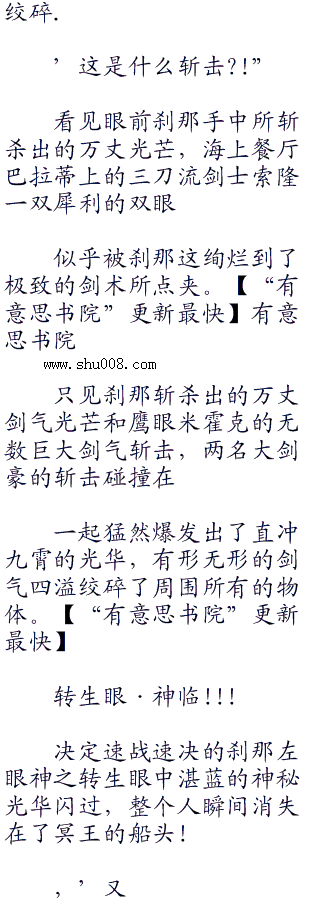 绞碎．
’这是什么斩击?!”
看见眼前刹那手中所斩
杀出的万丈光芒，海上餐厅
巴拉蒂上的三刀流剑士索隆
一双犀利的双眼
似乎被刹那这绚烂到了
极致的剑术所点夹。【“有
意思书院”更新最快】有意
思书院
www.shu008.com
只见刹那斩杀出的万丈
剑气光芒和鹰眼米霍克的无
数巨大剑气斩击，两名大剑
豪的斩击碰撞在
一起猛然爆发出了直冲
九霄的光华，有形无形的剑
气四溢绞碎了周围所有的物
体。【“有意思书院”更新
最快】
转生眼·神临!!!
决定速战速决的刹那左
眼神之转生眼中湛蓝的神秘
光华闪过，整个人瞬间消失
在了冥王的船头！
，’又